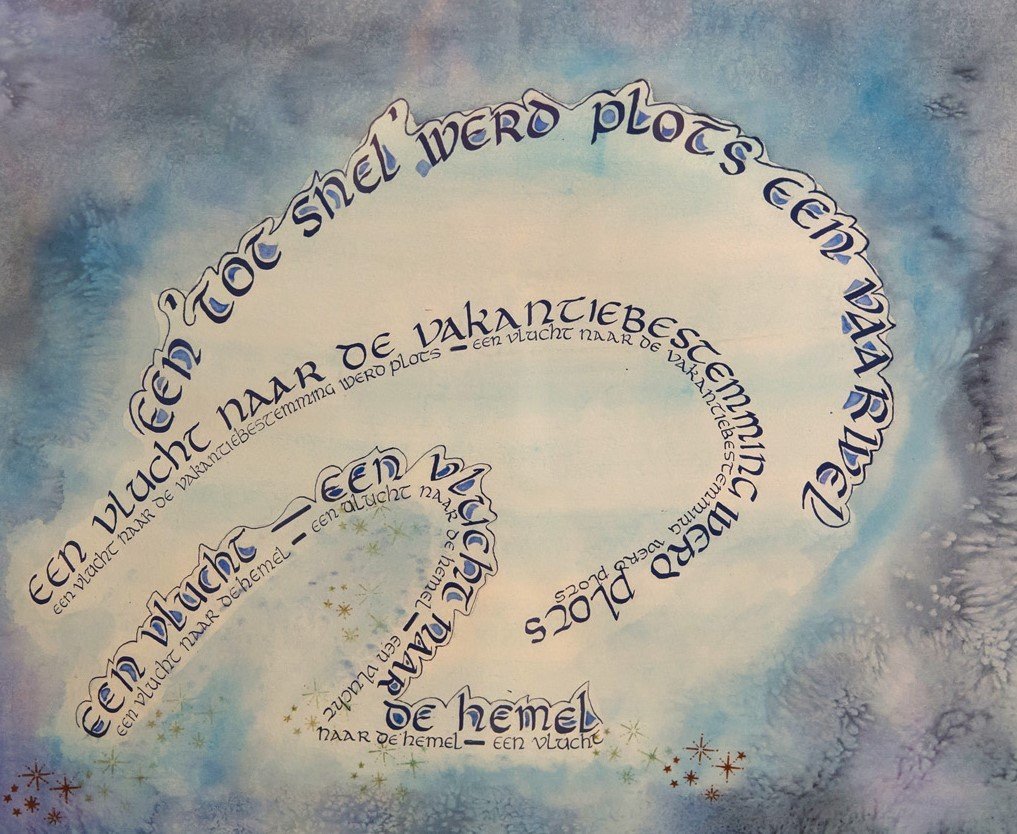 EEN 'TOT SNEL' WERD PLOTS EEN VAARWEL
EEN VLUCHT NAAR DE VAKANTIEBESTEMMING WERD PLOTS
EEN VLUCHT NAAR DE VAKANTIEBESTEMMING WERD PLOTS – EEN VLUCHT NAAR DE VAKANTIEBESTEMMING WERD PLOTS
EEN VLUCHT – EEN VLUCHT NAAR DE HEMEL
EEN VLUCHT NAAR DE HEMEL – EEN VLUCHT NAAR DE HEMEL – EEN VLUCHT NAAR DE HEMEL – EEN VLUCHT